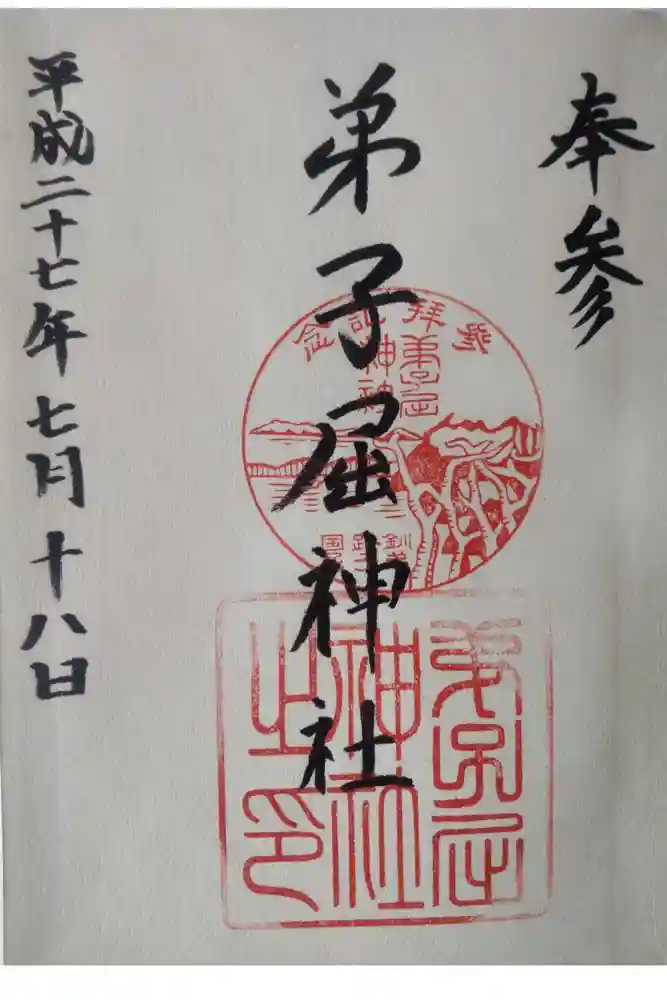 奉参
弟子屈神社
平成二十七年七月十八日
参拝記念
弟子屈
神社
弟子屈
神社
之印